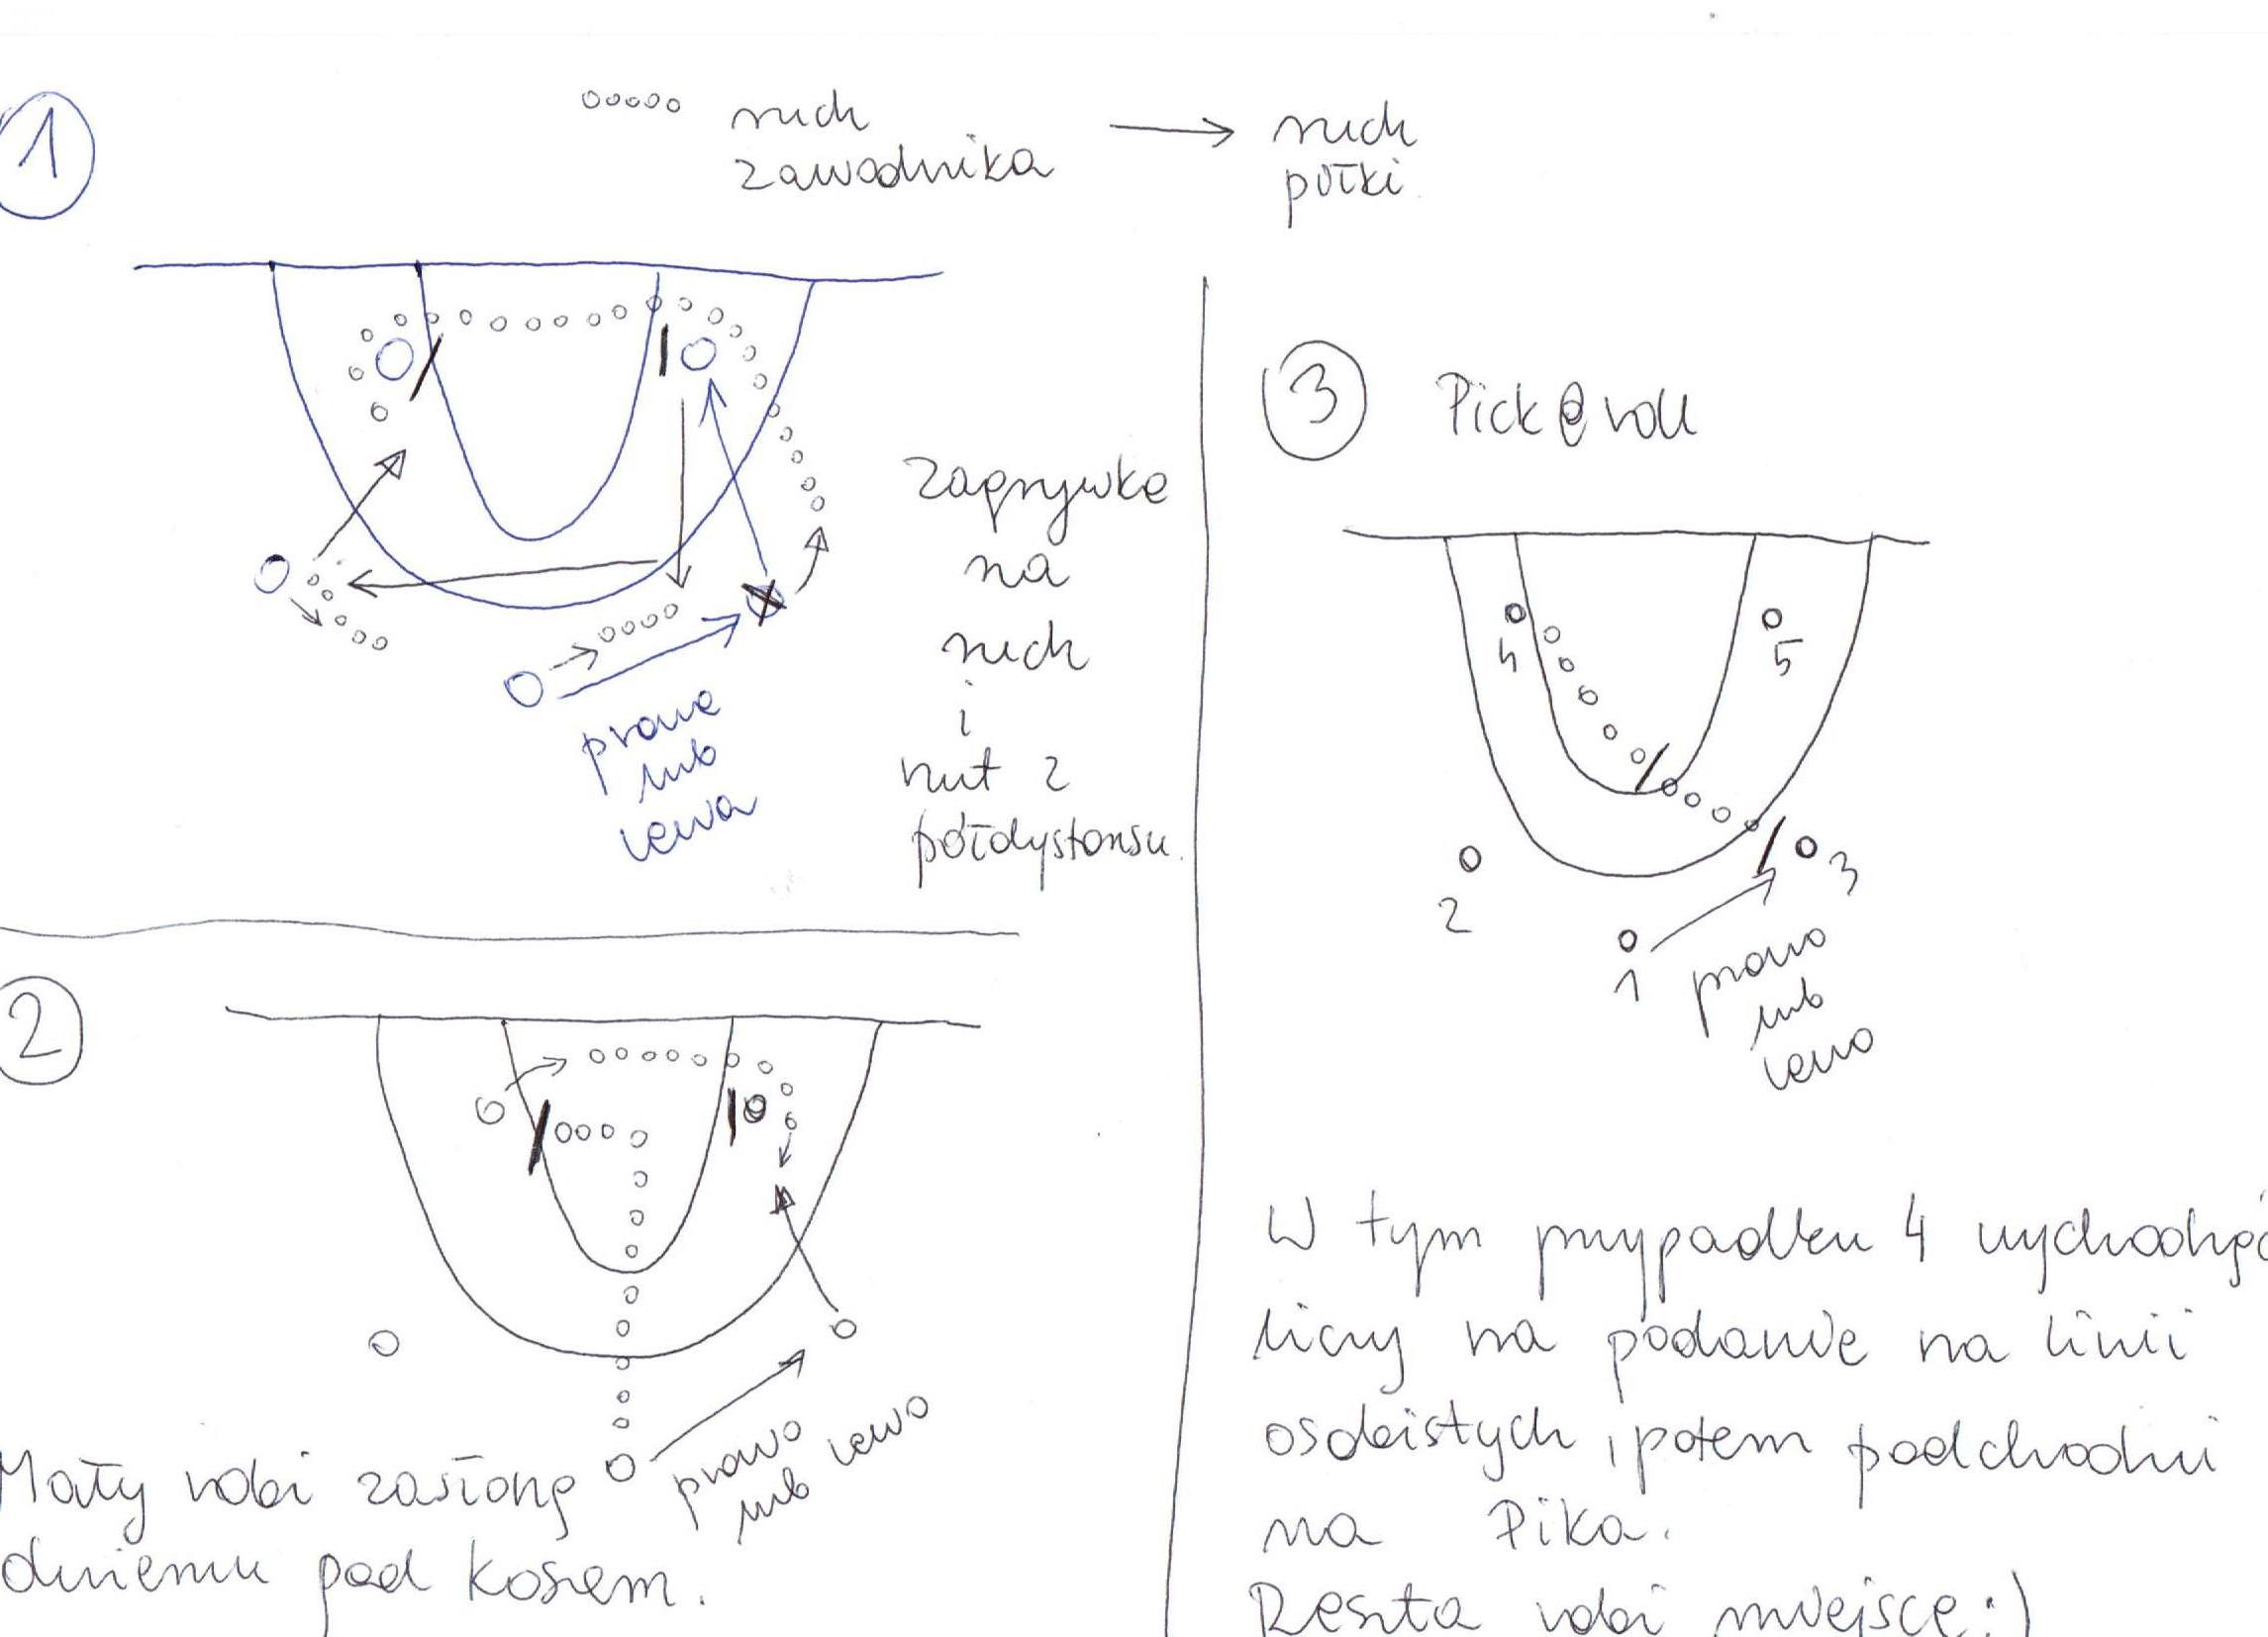 1
ruch
zawodnika
ruch
piłki
prawe
lub
lewa
zagrywka
na
ruch
i
rzut z
półdystansu.
2
prawo
lub lewo
Mały robi zasłonę
dużemu pod koszem.
3 Pick@roll
4
5
2
3
1
prawo
lub
lewo
W tym przypadku 4 wychodząc
liczy na podanie na linii
osobistych, potem podchodzi
na Pika.
Reszta robi miejsce:)